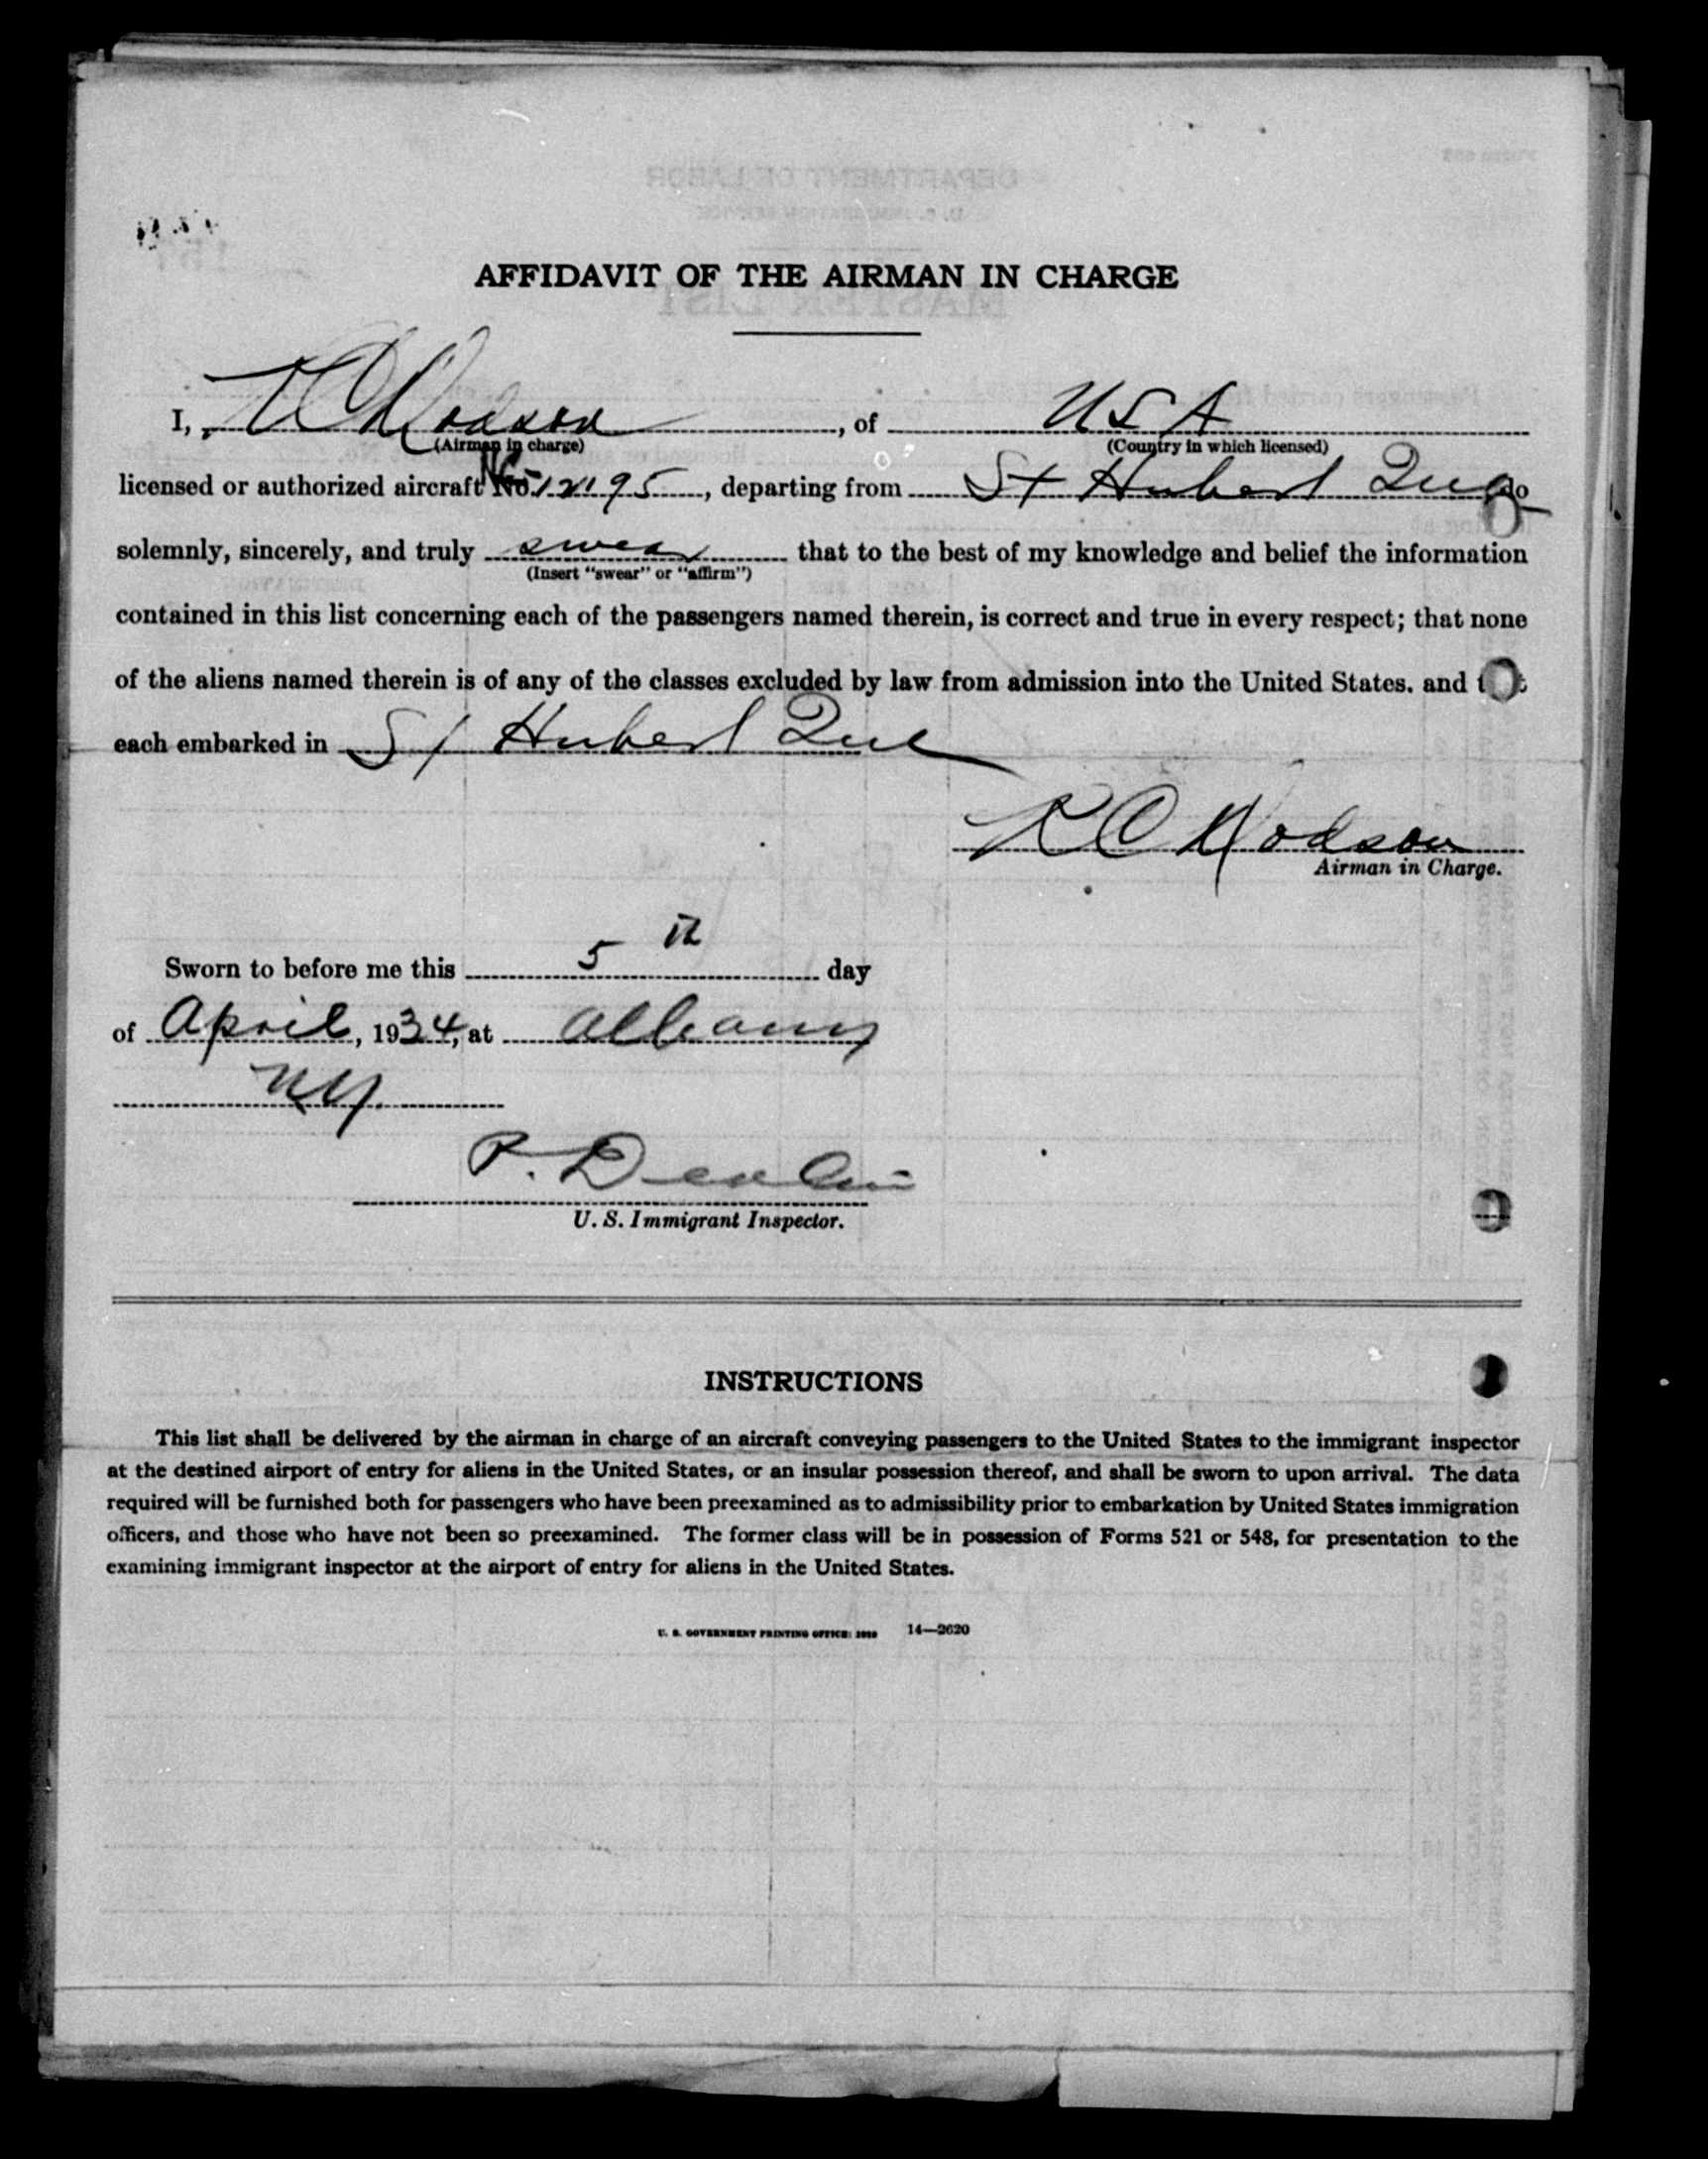 AFFIDAVIT OF THE AIRMAN IN CHARGE
I, R C Hodson, of USA
(Airman in charge) (Country in which licensed)
licensed or authorized aircraft No. 12195, departing from St Hubert Que do
solemnly, sincerely, and truly swear that to the best of my knowledge and belief the information
(Insert "swear" or "affirm")
contained in this list concerning each of the passengers named therein, is correct and true in every respect; that none
of the aliens named therein is of any of the classes excluded by law from admission into the United States. and
each embarked in St Hubert Que
R C Hodson
Airman in Charge.
Sworn to before me this 5th day
of April, 1934, at Albany
N.Y.
P. Devlin
U. S. Immigrant Inspector.
INSTRUCTIONS
This list shall be delivered by the airman in charge of an aircraft conveying passengers to the United States to the immigrant inspector
at the destined airport of entry for aliens in the United States, or an insular possession thereof, and shall be sworn to upon arrival. The data
required will be furnished both for passengers who have been preexamined as to admissibility prior to embarkation by United States immigration
officers, and those who have not been so preexamined. The former class will be in possession of Forms 521 or 548, for presentation to the
examining immigrant inspector at the airport of entry for aliens in the United States.
U. S. GOVERNMENT PRINTING OFFICE: 14—2620